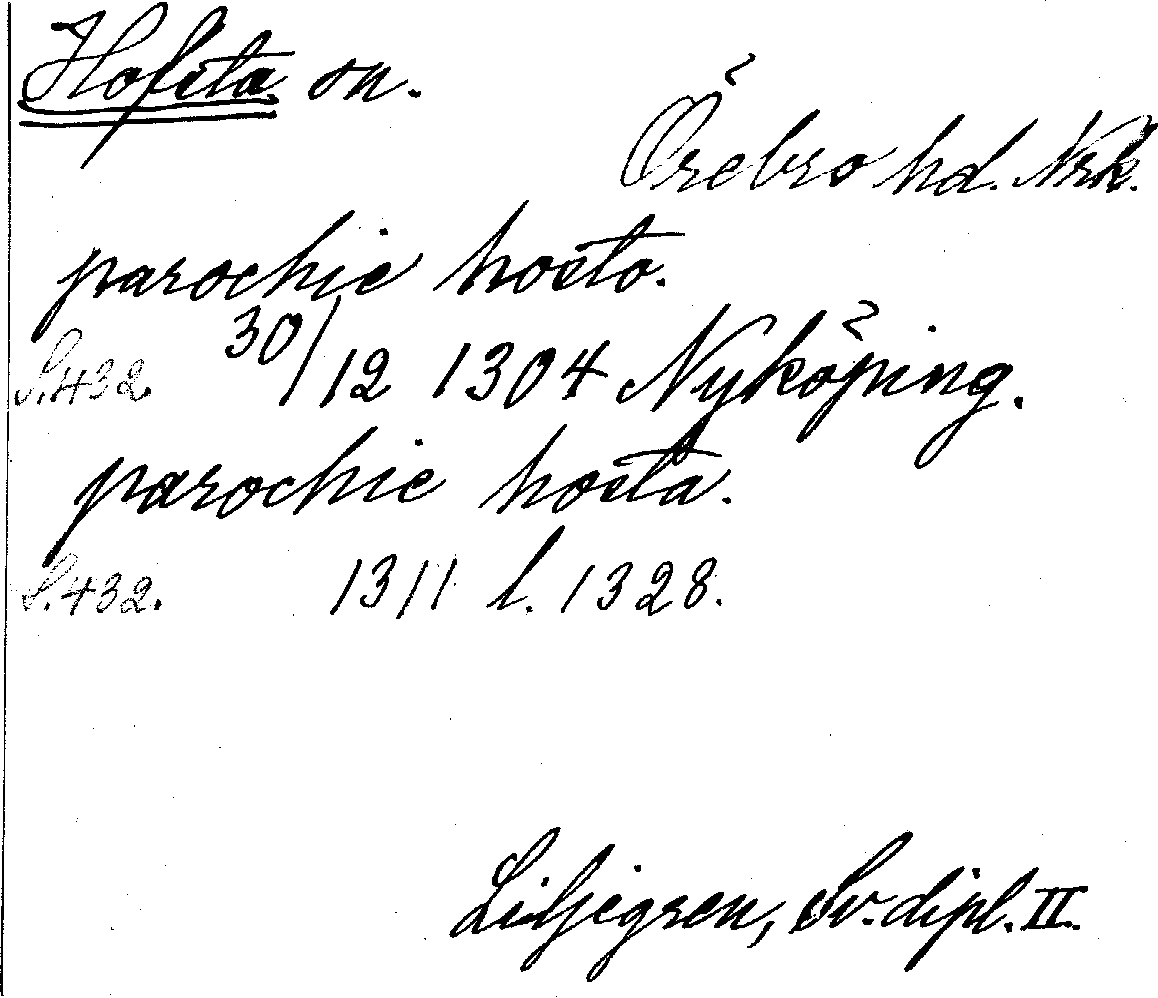 Hofsta sn.
Örebro hd. Nrk.
parochie hosto.
S. 432. 30/12 1304 Nyköping.
parochie hosta.
S. 432. 1311 l. 1328.
Liljegren, Sv. dipl. II.